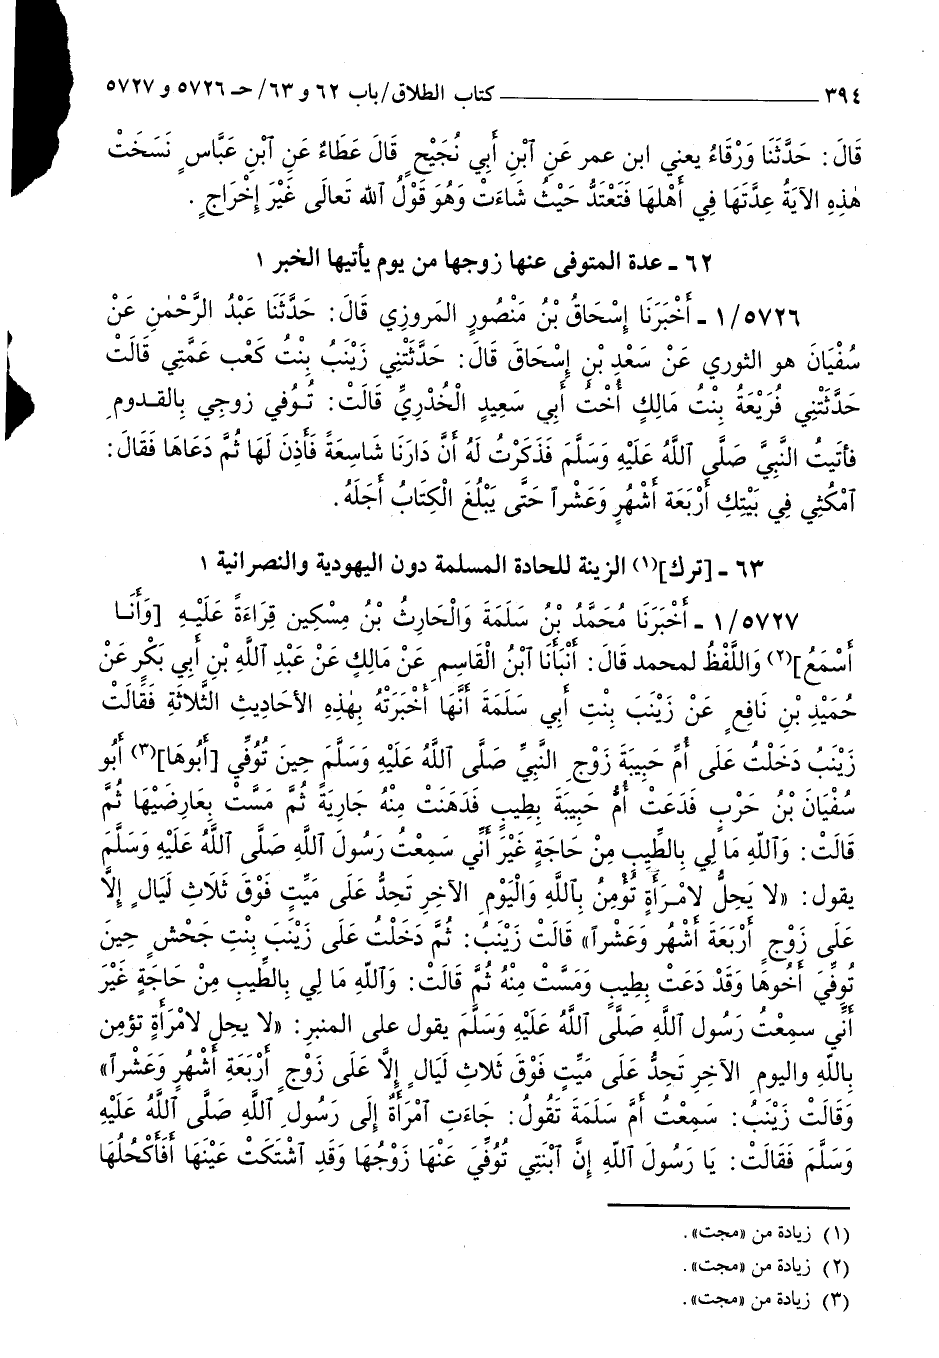 ٣٩٤ ــــــــــــــــــــــــــــــ كتاب الطلاق/باب ٦٢ و ٦٣/ حـ ٥٧٢٦ و ٥٧٢٧
قَالَ: حَدَّثَنَا وَرْقَاءُ يعني ابن عمر عَنِ ٱبْنِ أَبِي نُجَيْحٍ قَالَ عَطَاءٌ عَنِ ٱبْنِ عَبَّاسٍ نَسَخَتْ
هٰذِهِ الآيَةُ عِدَّتَهَا فِي أَهْلِهَا فَتَعْتَدُّ حَيْثُ شَاءَتْ وَهُوَ قَوْلُ ٱلله تَعالَى غَيْرَ إِخْرَاجٍ.
٦٢ ـ عدة المتوفى عنها زوجها من يوم يأتيها الخبر ١
١/٥٧٢٦ ـ أَخْبَرَنَا إِسْحَاقُ بْنُ مَنْصُورٍ المَروزي قَالَ: حَدَّثَنَا عَبْدُ الرَّحْمٰنِ عَنْ
سُفْيَانَ هو الثوري عَنْ سَعْدِ بْنِ إِسْحَاقَ قَالَ: حَدَّثَتْنِي زَيْنَبُ بِنْتُ كَعْب عَمَّتِي قَالَتْ
حَدَّثَتْنِي فُرَيْعَةُ بِنْتُ مَالِكٍ أُخْتُ أَبِي سَعِيدٍ الْخُدْرِيِّ قَالَتْ: تُوُفي زوجِي بِالقَدومِ
فَأتَيتُ النَّبِيَّ صَلَّى ٱللَّهُ عَلَيْهِ وَسَلَّمَ فَذَكَرْتُ لَهُ أَنَّ دَارَنَا شَاسِعَةً فَأَذِنَ لَهَا ثُمَّ دَعَاهَا فَقَالَ:
ٱمْكُثِي فِي بَيْتِكِ أَرْبَعَةَ أَشْهُرٍ وَعَشْراً حَتَّى يَبْلُغَ الْكِتَابُ أَجَلَهُ.
٦٣ ـ [ترك](١) الزينة للحادة المسلمة دون اليهودية والنصرانية ١
١/٥٧٢٧ ـ أَخْبَرَنَا مُحَمَّدُ بْنُ سَلَمَةَ وَالْحَارِثُ بْنُ مِسْكِين قِرَاءَةً عَلَيْهِ [وَأَنَا
أَسْمَعُ](٢) وَاللَّفْظُ لمحمد قَالَ: أَنْبَأَنَا ٱبْنُ الْقَاسِمِ عَنْ مَالِكٍ عَنْ عَبْدِ ٱللَّهِ بْنِ أَبِي بَكْرٍ عَنْ
حُمَيْدِ بْنِ نَافِعٍ عَنْ زَيْنَبَ بِنْتِ أَبِي سَلَمَةَ أَنَّهَا أَخْبَرَتْهُ بِهٰذِهِ الأَحَادِيثِ الثَّلاثَةِ فَقَالَتْ
زَيْنَبُ دَخَلْتُ عَلَى أُمِّ حَبِيبَةَ زَوْجِ النَّبِيِّ صَلَّى ٱللَّهُ عَلَيْهِ وَسَلَّمَ حِينَ تُوُفِّي [أَبُوهَا](٣) أَبُو
سُفْيَانَ بْنُ حَرْبٍ فَدَعَتْ أُمُّ حَبِيبَةَ بِطِيبٍ فَدَهَنَتْ مِنْهُ جَارِيَةً ثُمَّ مَسَّتْ بِعَارِضَيْهَا ثُمَّ
قَالَتْ: وَٱللّهِ مَا لِي بِالطِّيبِ مِنْ حَاجَةٍ غَيْرَ أَنِّي سَمِعْتُ رَسُولَ ٱللَّهِ صَلَّى ٱللَّهُ عَلَيْهِ وَسَلَّمَ
يقول: «لا يَحِلُّ لامْرَأَةٍ تُؤْمِنُ بِٱللَّهِ وَالْيَوْمِ الآخِرِ تَحِدُّ عَلَى مَيِّتٍ فَوْقَ ثَلَاثِ لَيَالٍ إِلَّا
عَلَى زَوْجٍ أَرْبَعَةَ أَشْهُرٍ وَعَشْراً» قَالَتْ زَيْنَبُ: ثُمَّ دَخَلْتُ عَلَى زَيْنَبَ بِنْتِ جَحْشٍ حِينَ
تُوفِّيَ أَخُوهَا وَقَدْ دَعَتْ بِطِيبٍ وَمَسَّتْ مِنْهُ ثُمَّ قَالَتْ: وَٱللّهِ مَا لِي بِالطِّيبِ مِنْ حَاجَةٍ غَيْرَ
أَنِّي سمِعْتُ رَسُولَ ٱللَّهِ صَلَّى ٱللَّهُ عَلَيْهِ وَسَلَّمَ يقول على المنبر: «لا يحل لامْرَأَةٍ تؤمن
بِاللّهِ واليومِ الآخِرِ تَحِدُّ عَلَى مَيِّتٍ فَوْقَ ثَلاثِ لَيَالٍ إِلَّا عَلَى زَوْجٍ أَرْبَعَةِ أَشْهُرٍ وَعَشْراً»
وَقَالَتْ زَيْنَبُ: سَمِعْتُ أُمَّ سَلَمَةَ تَقُولُ: جَاءَتِ ٱمْرَأَةٌ إِلَى رَسُولِ ٱللَّهِ صَلَّى ٱللَّهُ عَلَيْهِ
وَسَلَّمَ فَقَالَتْ: يَا رَسُولَ ٱللّهِ إِنَّ ٱبْنَتِي تُوُفِّيَ عَنْهَا زَوْجُهَا وَقَدِ ٱشْتَكَتْ عَيْنَهَا أَفَأَكْحُلُهَا
(١) زيادة من «مجت».
(٢) زيادة من «مجت».
(٣) زيادة من «مجت».